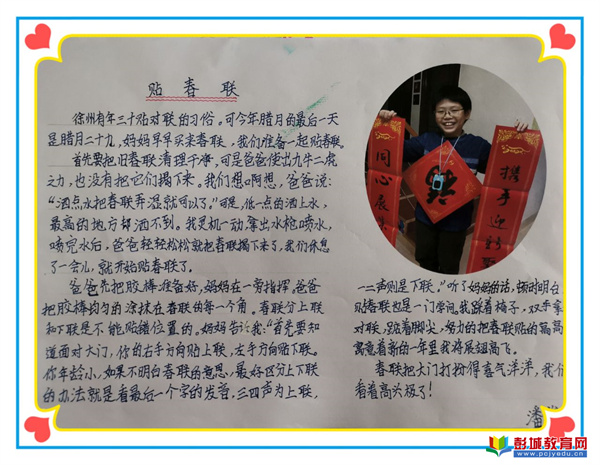 贴春联
徐州有年三十贴对联的习俗。可今年腊月的最后一天
是腊月二十九，妈妈早早买来春联，我们准备一起贴春联。
首先要把旧春联清理干净，可是爸爸使出九牛二虎
之力，也没有把它们揭下来。我们想啊想，爸爸说：
“洒点水把春联弄湿就可以了。”可是，低一点的洒上水，
最高的地方却洒不到。我灵机一动，拿出水枪喷水，
喷完水后，爸爸轻轻松松就把春联揭下来了，我们休息
了一会儿，就开始贴春联了。
爸爸先把胶棒准备好，妈妈在一旁指挥，爸爸
把胶棒均匀的涂抹在春联的每一个角。春联分上联
和下联是不能贴错位置的。妈妈告诉我：“首先要知
道面对大门，你的右手方向贴上联，左手方向贴下联。
你年龄小，如果不明白春联的意思，最好区分上下联
的办法就是看最后一个字的发音，三四声为上联，
同心展
携手迎
一二声则是下联。”听了妈妈的话，顿时明白
贴春联也是一门学问。我踩着椅子，双手拿
对联，踮着脚尖，努力的把春联贴的高高
寓意着新的一年里我将展翅高飞。
春联把大门打扮得喜气洋洋，我们
看着高兴极了！
潘
彭城教育网
www.pcjyedu.cn